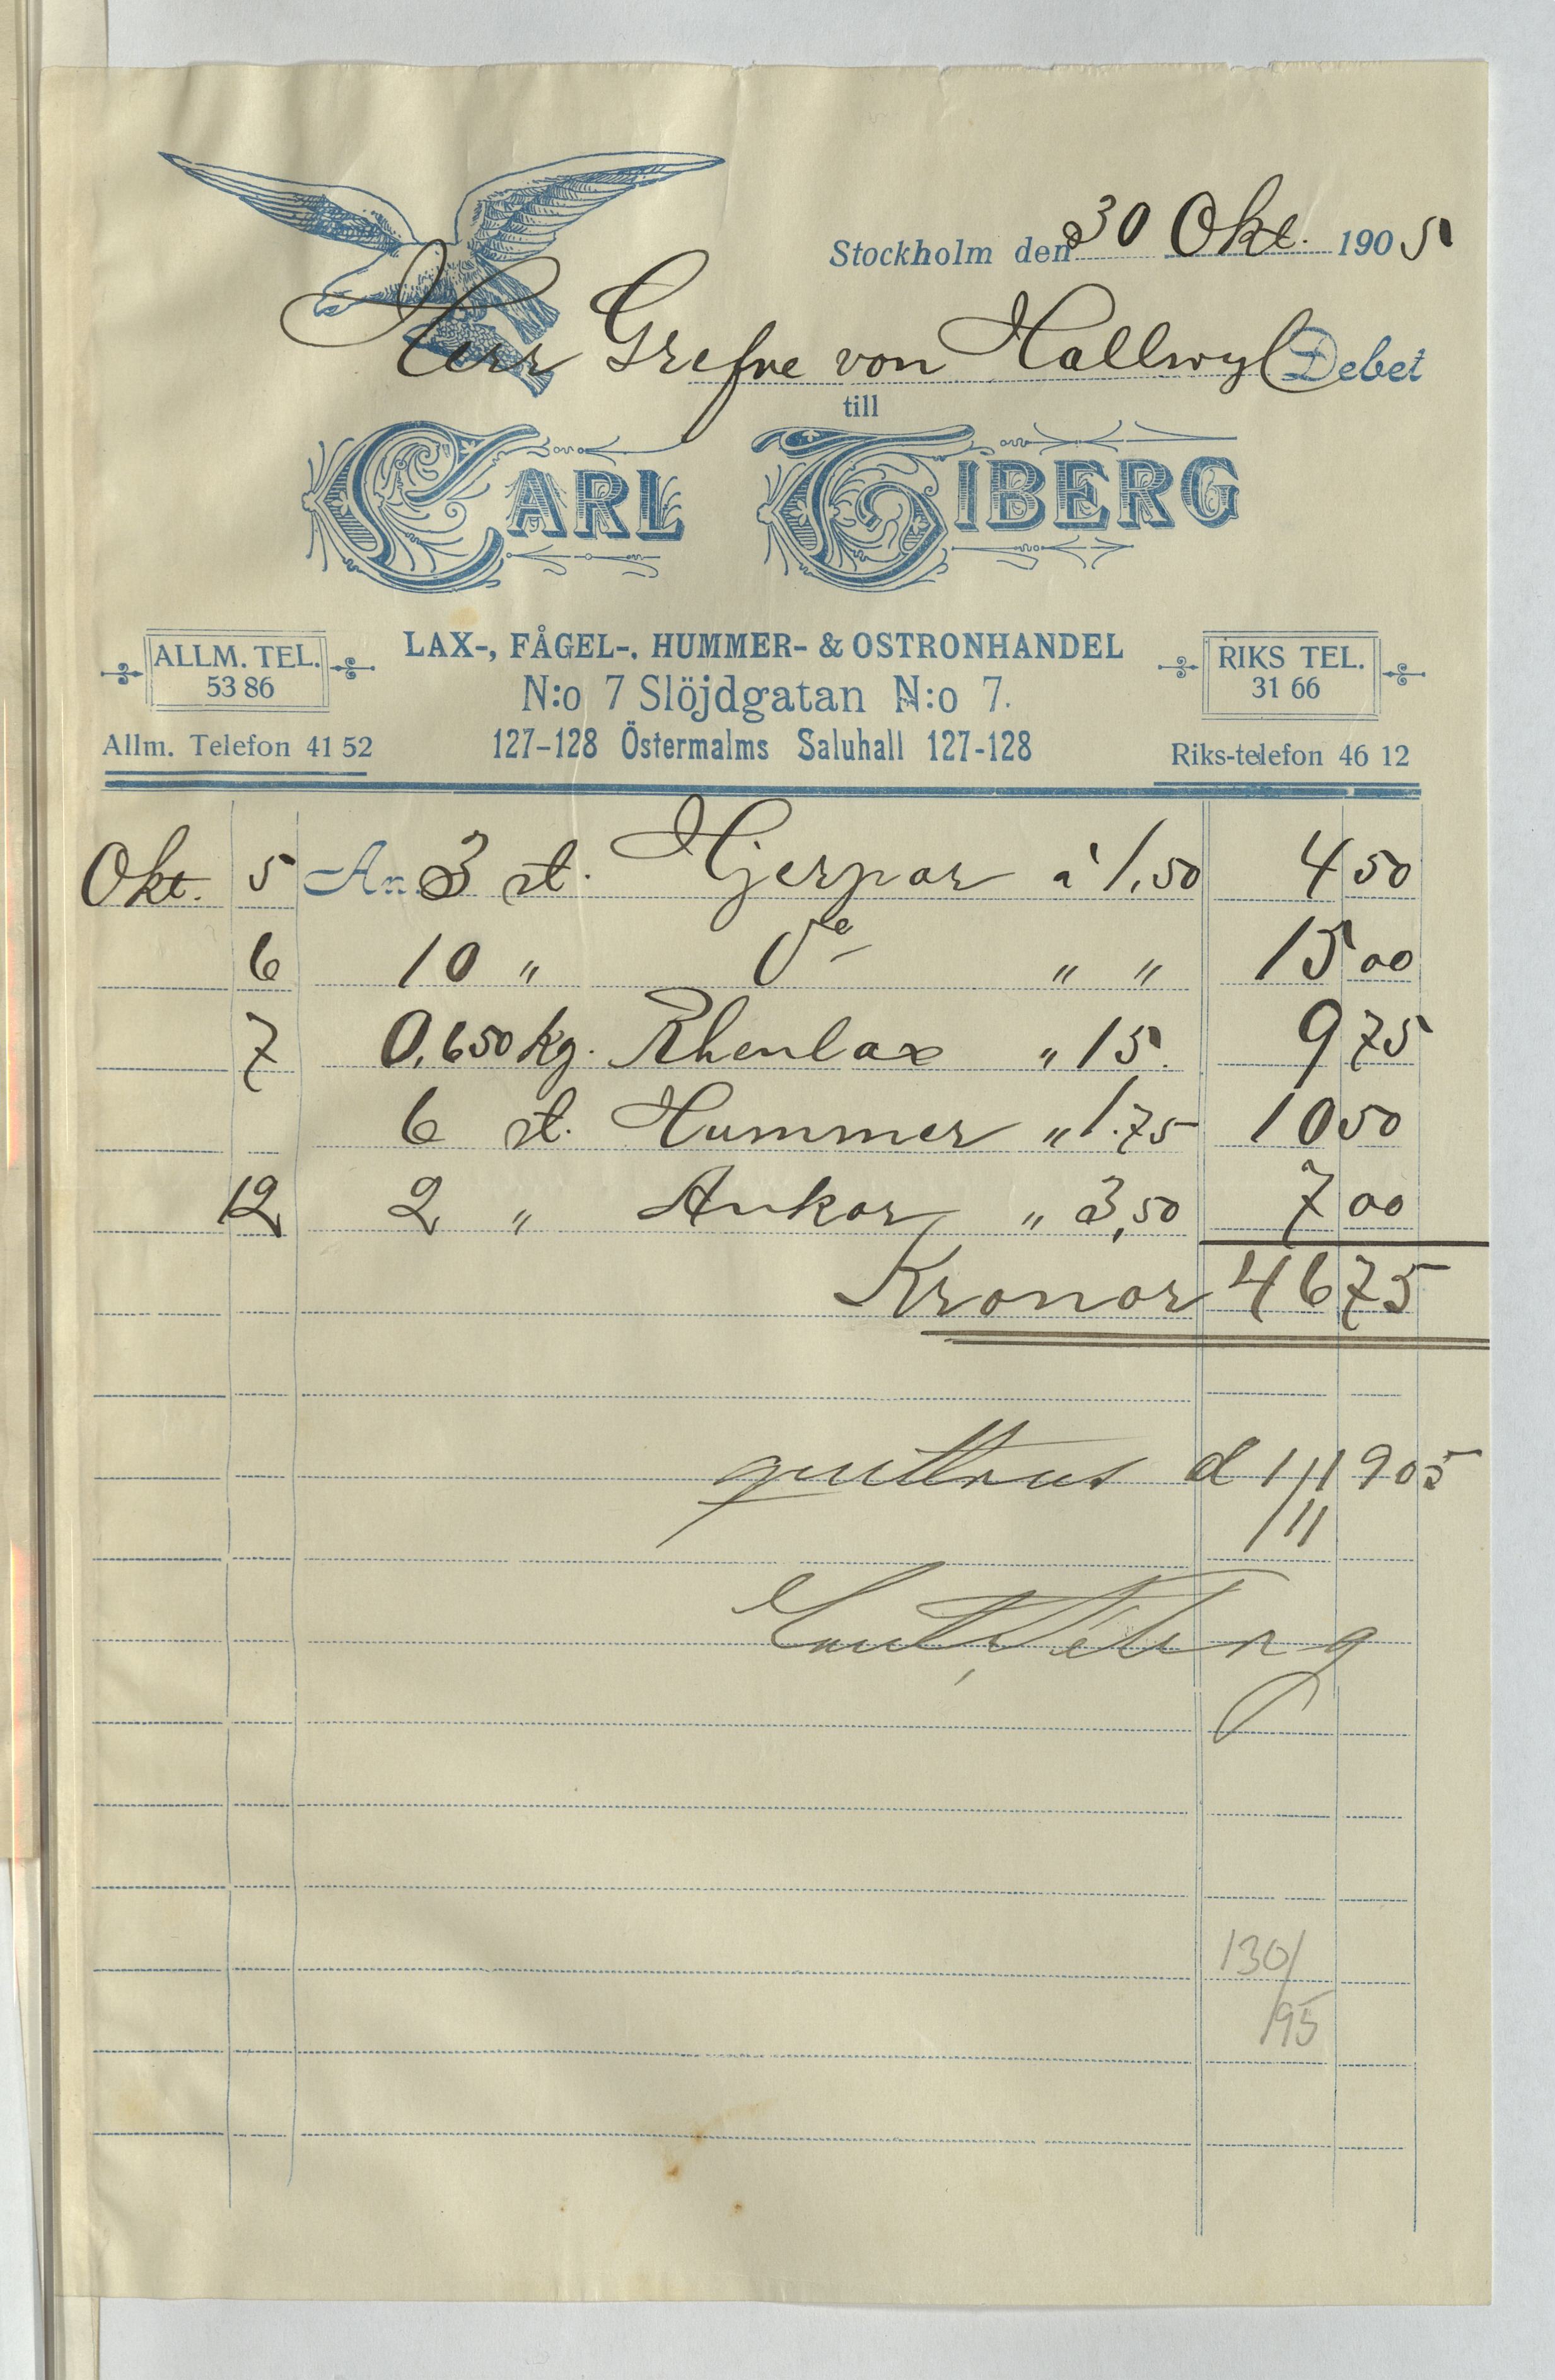 Stockholm den 30 Okt. 1905
Herr Grefve von Hallwyl Debet
till
CARL TIBERG
LAX-, FÅGEL-, HUMMER- & OSTRONHANDEL
ALLM. TEL.
53 86
RIKS TEL.
31 66
N:o 7 Slöjdgatan N:o 7.
Allm. Telefon 41 52
127-128 Östermalms Saluhall 127-128
Riks-telefon 46 12
Okt. 5 An 3 st. Hjerpar à 1,50 4 50
6 10 " D:o " " 15 00
7 0,650 kg. Rhenlax " 15. 9 75
6 st. Hummer " 1.75 10 50
12 2 " Ankor " 3,50 7 00
Kronor 46 75
d 1/11 1905
130/
/95